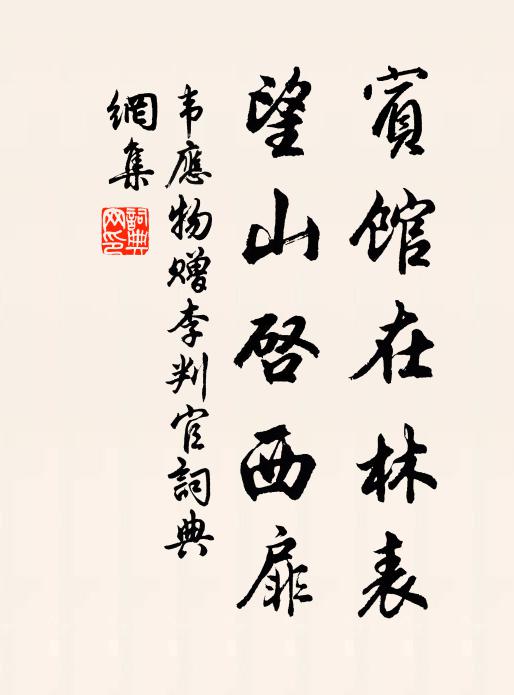 賓館在林表
望山啓西扉
韦應物赠李判官詞典
網集
詞典
网印